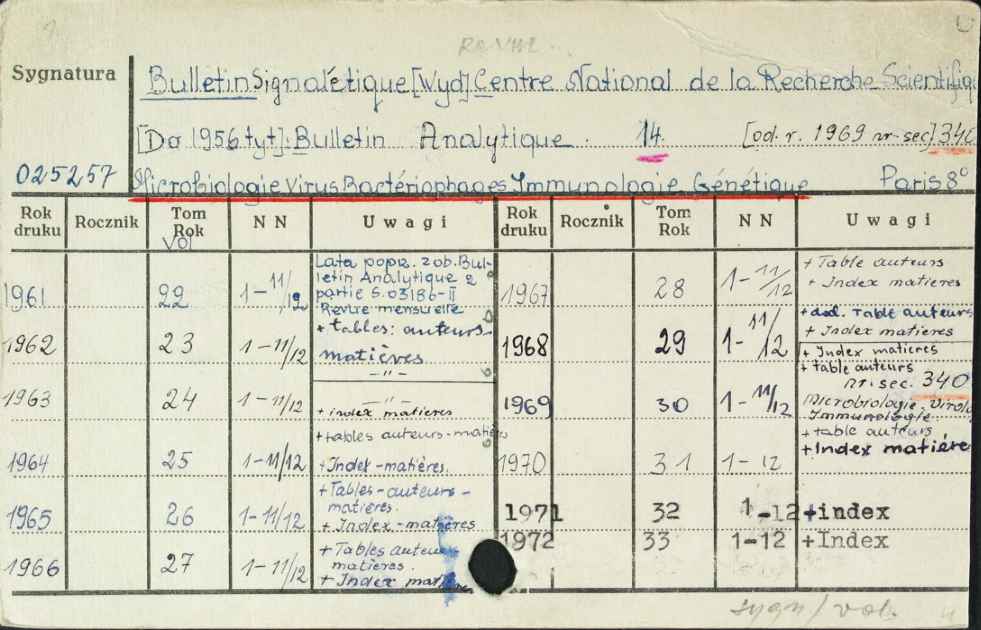 Sygnatura
Bulletin Signalétique [Wyd] Centre National de la Recherche Scientifiq
[Do 1956 tyt]: Bulletin Analytique 14. [od. r. 1969 nr-sec] 340
025257
Microbiologie Virus Bactériophages Immunologie Génétique Paris 8°
Rok druku Rocznik Tom Rok Vol N N Uwagi Rok druku Rocznik Tom Rok N N Uwagi
1961 22 1-11/12 Lata popız. zob. Bul-
letin Analytique 2
partie S.03186-II
Revue mensuelle
1962 23 1-11/12 + tables: auteurs
matières
1963 24 1-11/12 -"-
-"-
+ index matieres
1964 25 1-11/12 + tables auteurs-matières
+ Index-matières.
1965 26 1-11/12 + Tables-auteurs-
matières.
+ Index-matières
1966 27 1-11/12 + Tables auteurs
matieres.
+ Index matieres
1967 28 1-11/12 + Table auteurs
+ Index matières
1968 29 1-11/12 + dod. Table auteurs
+ Index matieres
1969 30 1-11/12 + Index matieres
+ table auteurs
nr. sec. 340
Microbiologie. Virolo
Immunologie.
1970 31 1-12 + table auteurs
+ Index matiére
1971 32 1-12 +index
1972 33 1-12 +Index
sygn/vol.